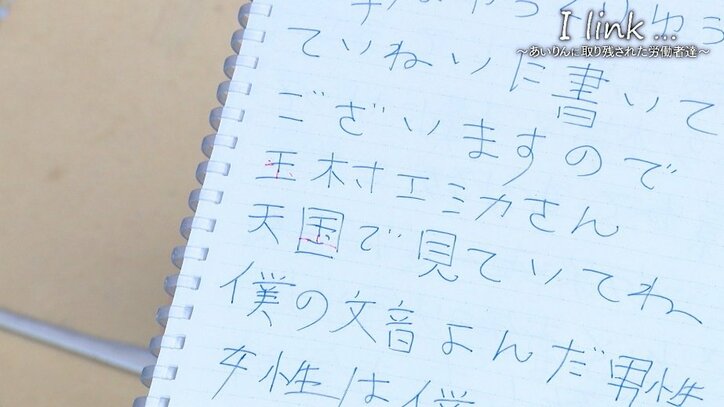 I link ...
～あいりんに取り残された労働者達～
ていねいに書いて
ございますので
玉村エミカさん
天国で見ていてね
僕の文音よんだ男性
女性は僕